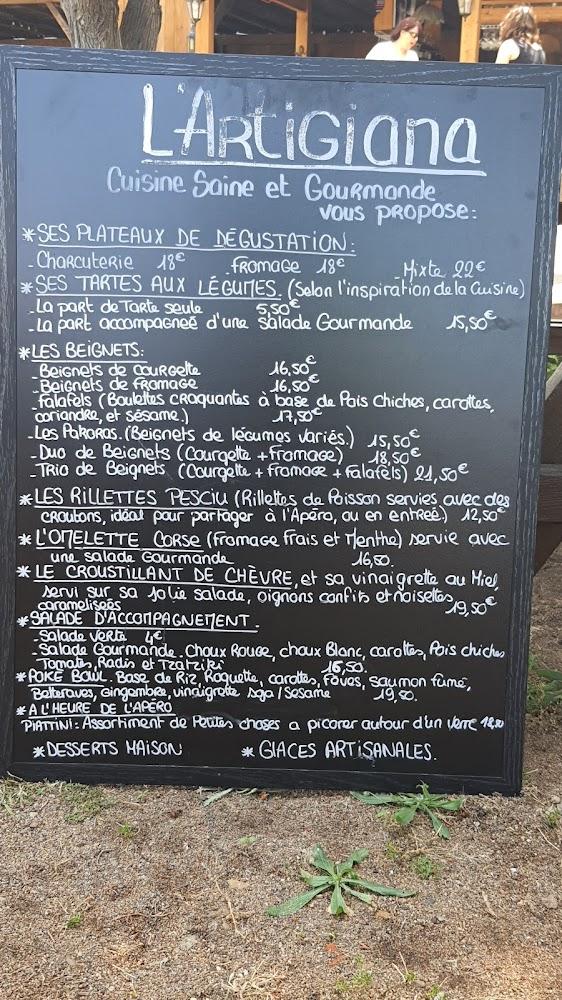 L'ARTIGIANA
Cuisine Saine et Gourmande
vous propose:
*SES PLATEAUX DE DÉGUSTATION:
- Charcuterie 18€ - fromage 18€ - Mixte 22€
*SES TARTES AUX LÉGUMES. (Selon l'inspiration de la Cuisine)
- La part de Tarte seule 5,50€
- La part accompagneé d'une salade Gourmande 15,50€
*LES BEIGNETS:
- Beignets de courgette 16,50€
- Beignets de fromage 16,50€
- Falafels (Boulettes craquantes à base de Pois Chiches, carottes,
coriandre, et sésame.) 17,50€
- Les Pakoras. (Beignets de légumes variés.) 15,50€
- Duo de Beignets (Courgette + fromage) 18,50€
- Trio de Beignets (Courgette + fromage + falafels) 21,50€
*LES RILLETTES PESCIU (Rillettes de Poisson servies avec des
croutons, idéal pour partager à l'Apéro, ou en entreé.) 12,50€
*L'OMELETTE CORSE (fromage frais et Menthe) servie avec
une salade Gourmande 16,50.
*LE CROUSTILLANT DE CHÈVRE, et sa vinaigrette au Miel,
servi sur sa jolie salade, oignons confits et noisettes
caramelisées 19,50€
*SALADE D'ACCOMPAGNEMENT.
- Salade Verte 4€
- Salade Gourmande. Choux Rouge, choux Blanc, carottes, Pois chiches
Tomates, Radis et Tzatziki 16,50.
*POKÉ BOWL. Base de Riz, Roquette, carottes, fèves, Saumon fumé,
Betteraves, Gingembre, vinaigrette soja / Sésame 19,50.
*A L'HEURE DE L'APÉRO
PIATTINI: Assortiment de Petites choses a picorer autour d'un verre 12,50
*DESSERTS MAISON *GLACES ARTISANALES.